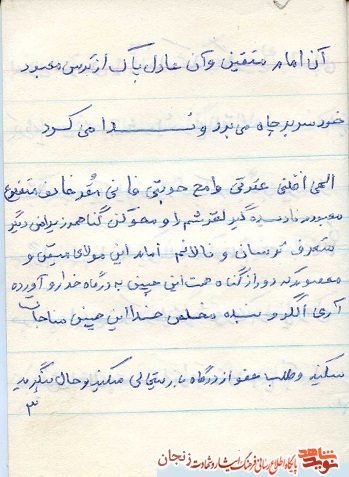 آن امام متقین و آن عادل پاک از ترس معبود
خود سر بر چاه می برد و نــــدا می کرد
الهی اقلنی عثرتی وامح حوبتی فانی مقر خائف متضرع
معبودا نادیده گیر لغزشم را و محو کن گناهم زیرا من دیگر
متعرف ترسان و نالانم امام این مولای متقی و
معصوم که دور از گناه هست این چنین به درگاه خدا رو آورده
آری الگو و بنده مخلص خدا این چنین مناجات
میکند و طلب عفو از درگاه باریتعالی میکند و حال بنگرید
۳
نوید شاهد پایگاه اطلاع رسانی فرهنگ ایثار و شهادت زنجان